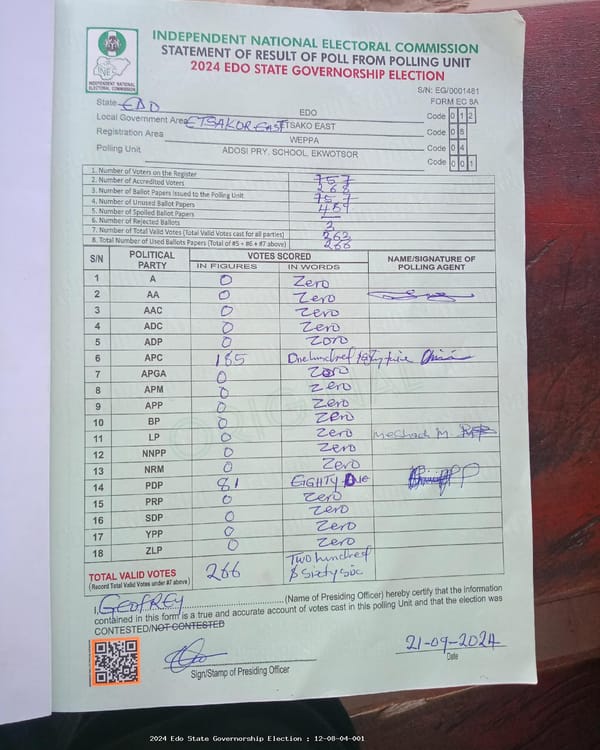 INDEPENDENT NATIONAL ELECTORAL COMMISSION
STATEMENT OF RESULT OF POLL FROM POLLING UNIT
2024 EDO STATE GOVERNORSHIP ELECTION
INEC
INDEPENDENT NATIONAL
ELECTORAL COMMISSION
S/N: EG/0001481
FORM EC 8A
State EDO EDO Code 0 1 2
Local Government Area ETSAKOR EAST ETSAKO EAST Code 0 8
Registration Area WEPPA Code 0 4
Polling Unit ADOSI PRY, SCHOOL, EKWOTSOR Code 0 0 1
1. Number of Voters on the Register 757
2. Number of Accredited Voters 268
3. Number of Ballot Papers Issued to the Polling Unit 757
4. Number of Unused Ballot Papers
5. Number of Spoiled Ballot Papers
6. Number of Rejected Ballots
7. Number of Total Valid Votes (Total Valid Votes cast for all parties)
8. Total Number of Used Ballots Papers (Total of #5 + #6 + #7 above) 266
S/N POLITICAL PARTY VOTES SCORED NAME/SIGNATURE OF POLLING AGENT
IN FIGURES IN WORDS
1 A 0 Zero
2 AA 0 Zero
3 AAC 0 Zero
4 ADC 0 Zero
5 ADP 0 Zoro
6 APC 185 One hundred
7 APGA 0 Zero
8 APM 0 Zero
9 APP 0 Zero
10 BP 0 Zero
11 LP 0 Zero Meshach M.
12 NNPP 0 Zero
13 NRM 0 Zero
14 PDP 81 EIGHTY One
15 PRP 0 Zero
16 SDP 0 Zero
17 YPP 0 Zero
18 ZLP 0 Zero
ORIGINAL
TOTAL VALID VOTES 266 Two hundred
(Record Total Valid Votes under #7 above) & Sixty six
I, GEOFREY (Name of Presiding Officer) hereby certify that the information
contained in this form is a true and accurate account of votes cast in this polling Unit and that the election was
CONTESTED/NOT CONTESTED
21-09-2024
Sign/Stamp of Presiding Officer Date
2024 Edo State Governorship Election : 12-08-04-001